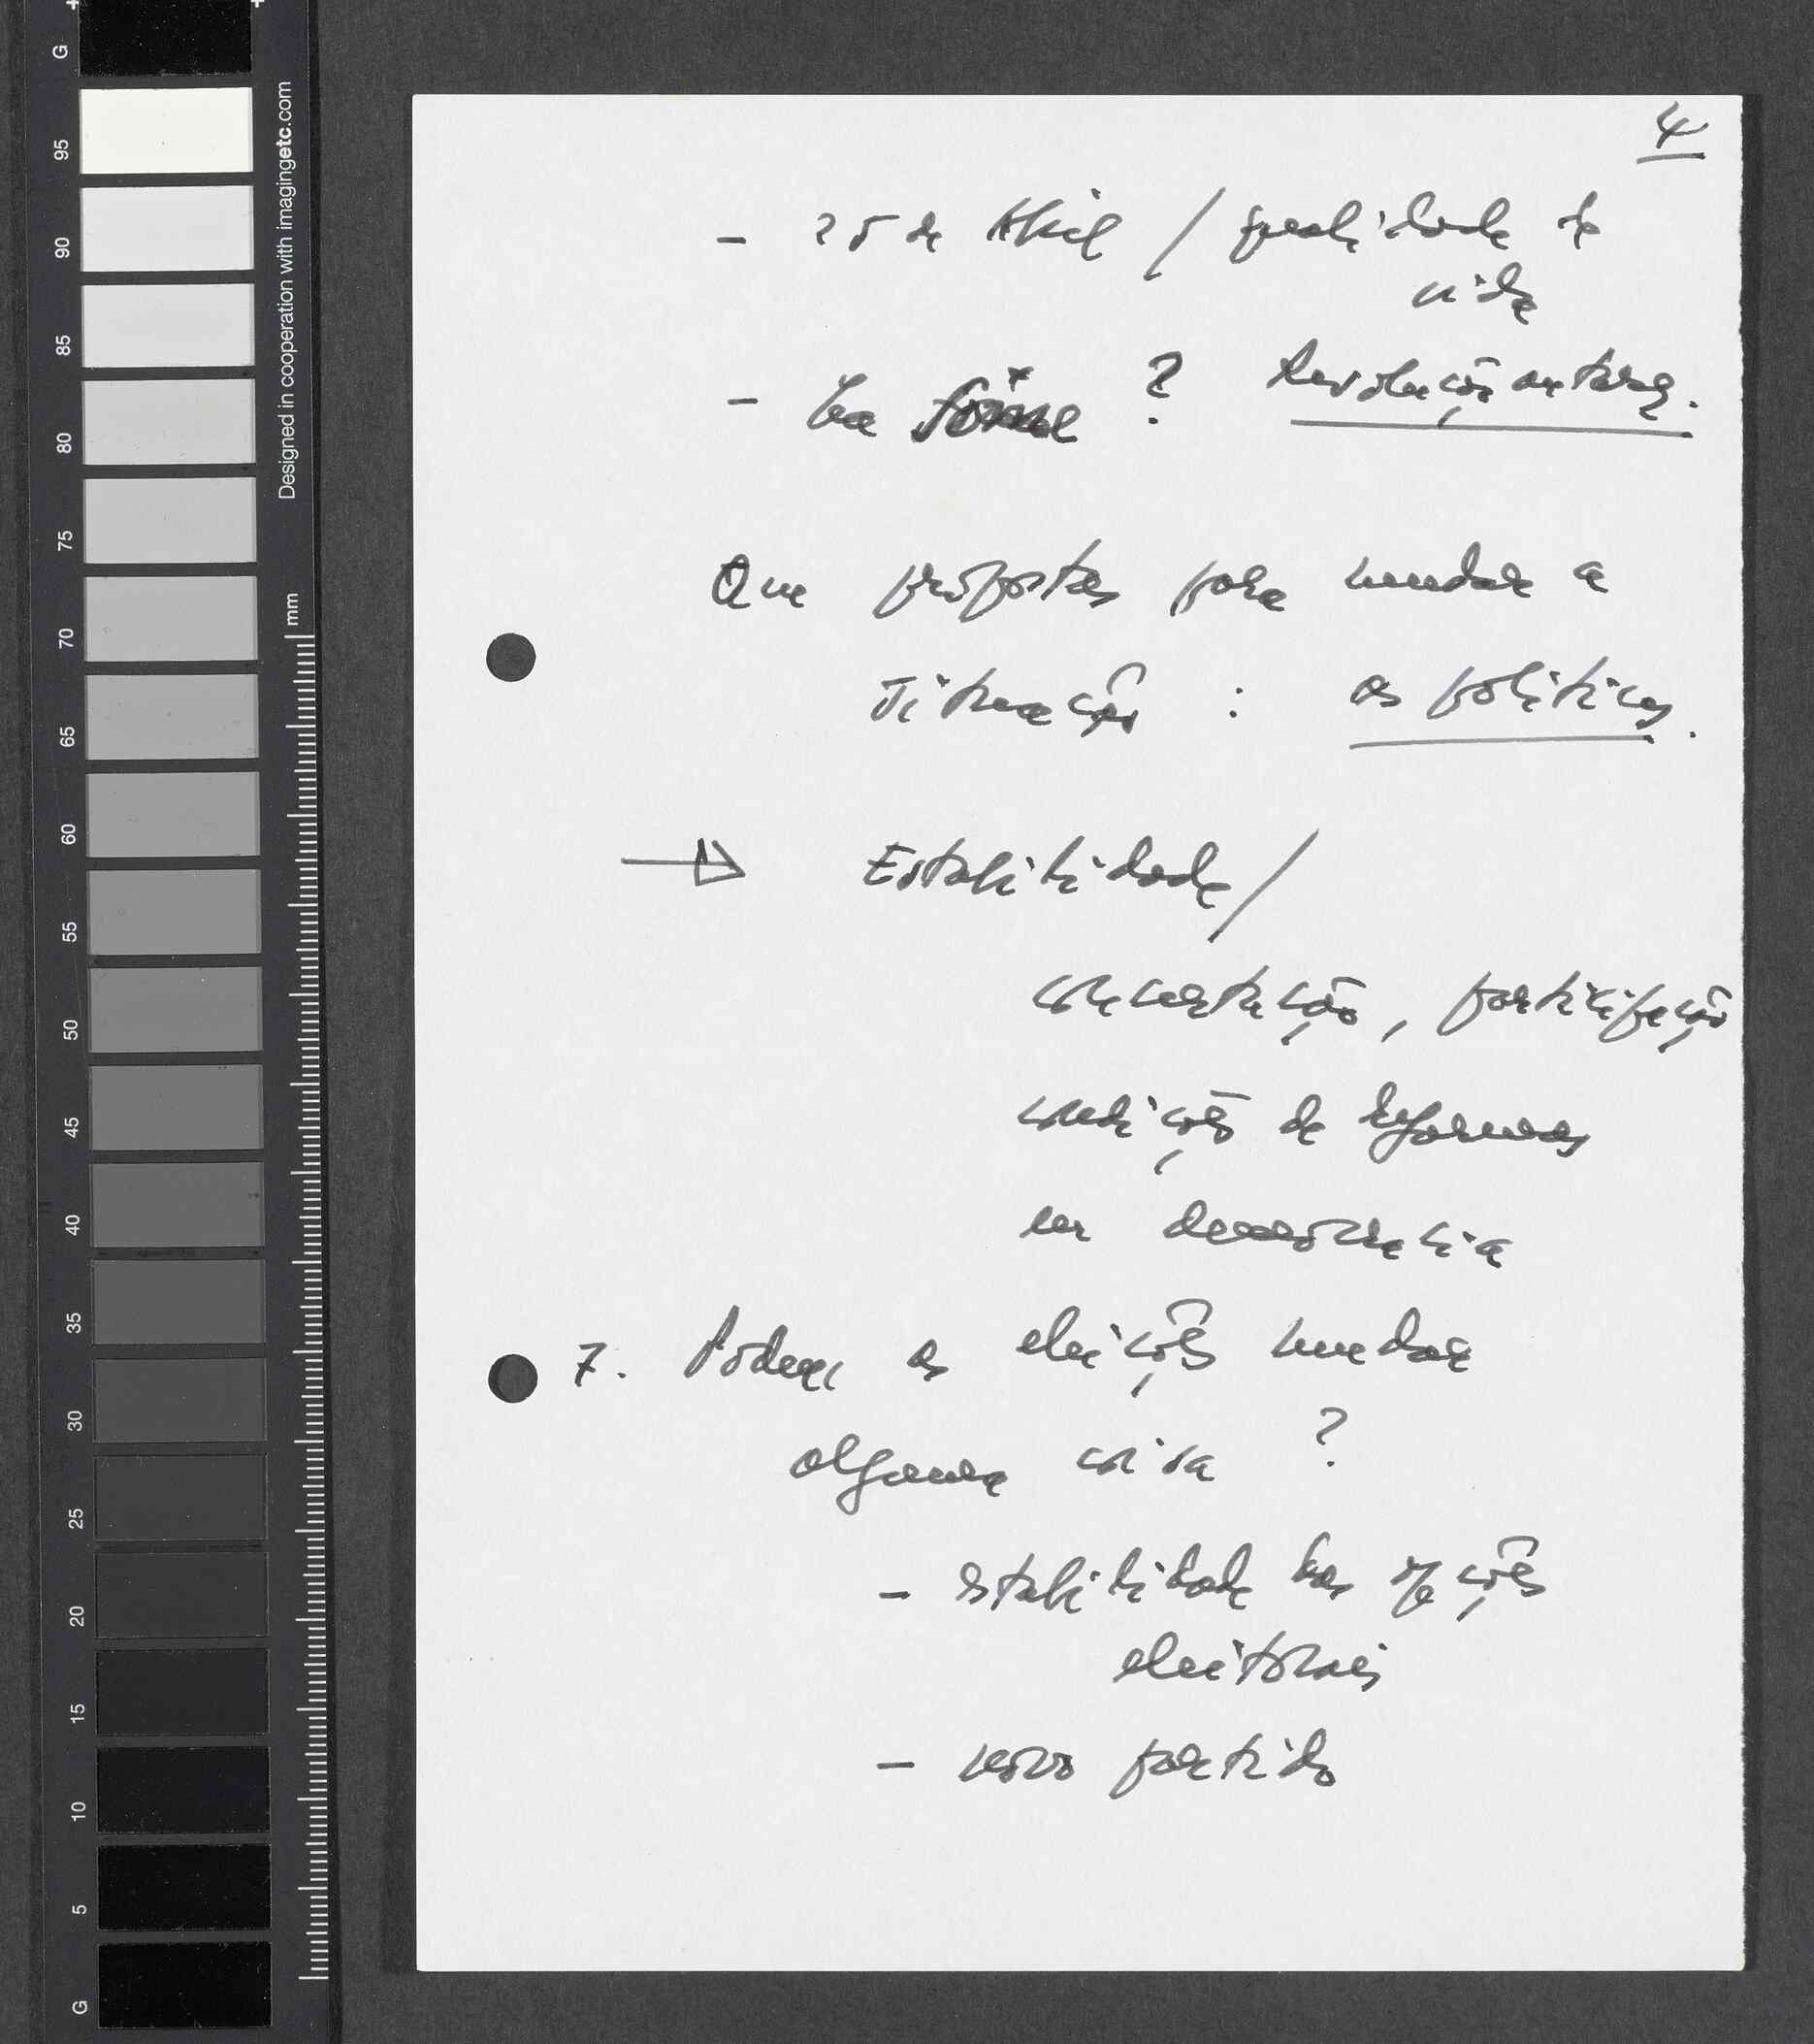 4
- 25 de Abril / qualidade de
vida
Que propostas para mudar a
situação : as políticas.
Estabilidade /
concertação, participação
condições de reformas
em democracia
7. Podem as eleições mudar
alguma coisa ?
- estabilidade das opções
eleitorais
- novo partido
Designed in cooperation with imagingetc.com
mm
G
95
90
85
80
75
70
65
60
55
50
45
40
35
30
25
20
15
10
5
G